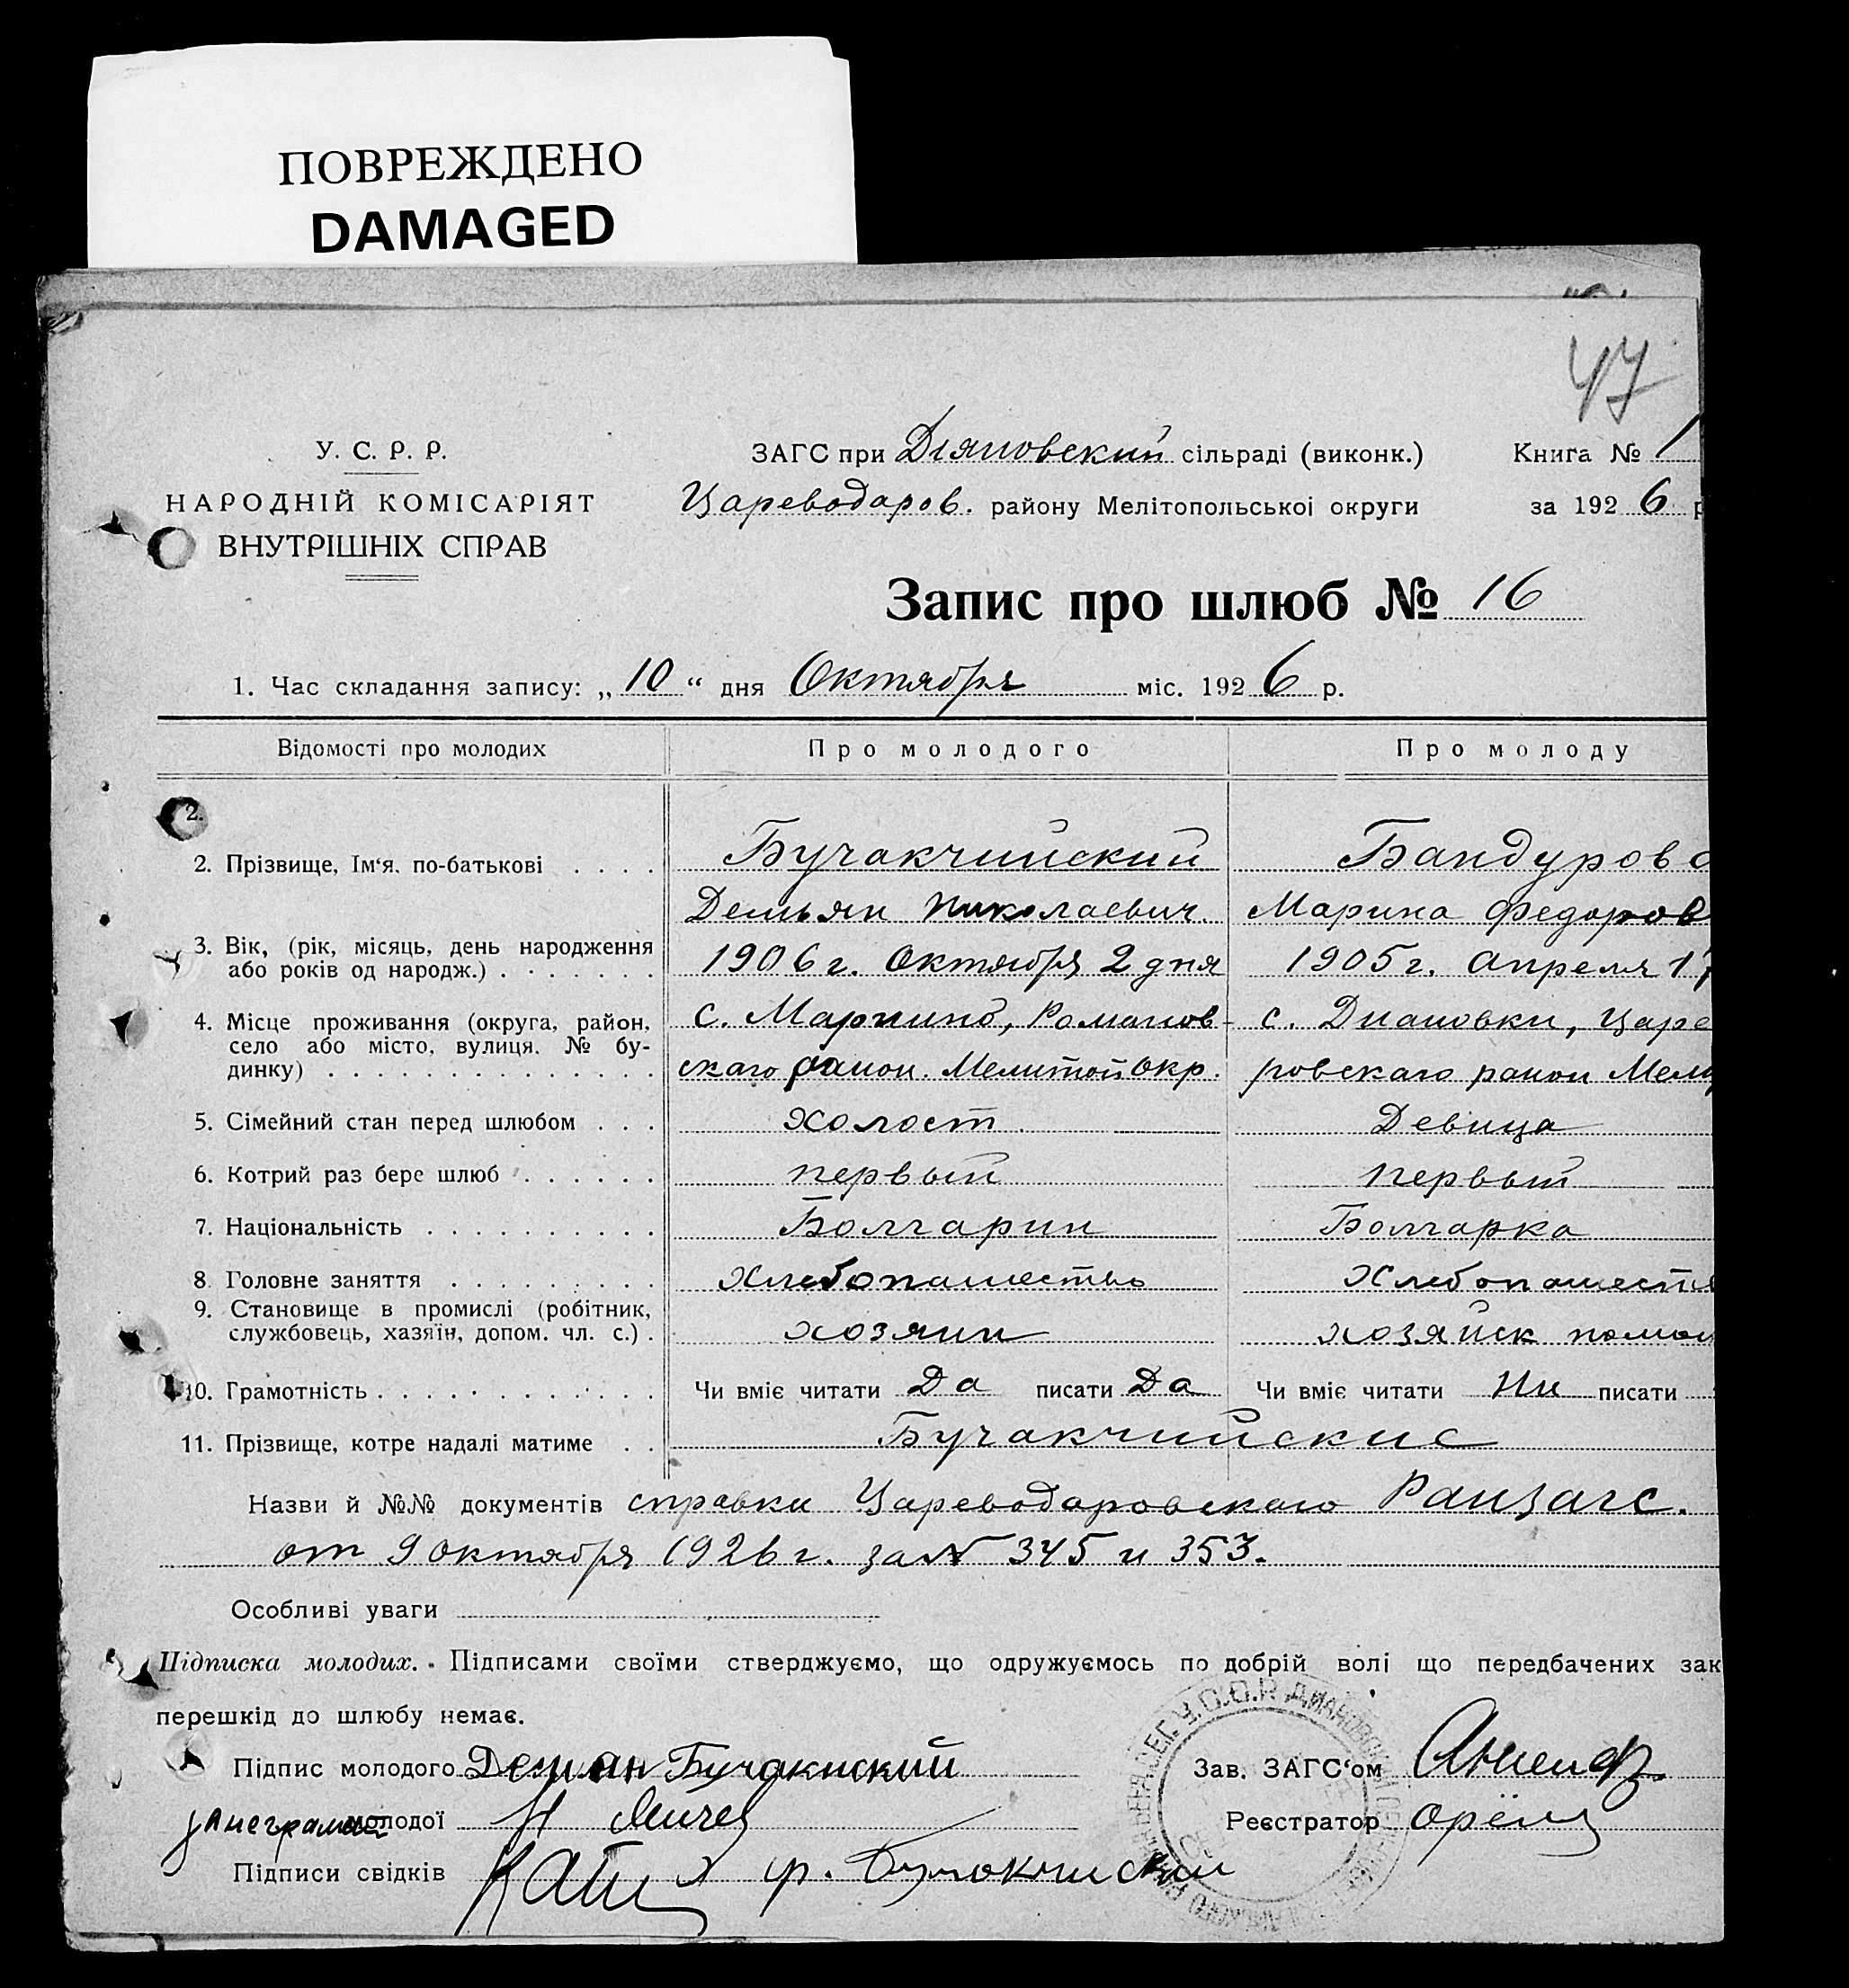 ПОВРЕЖДЕНО
DAMAGED
47
У. С. Р. Р.
НАРОДНІЙ КОМІСАРІЯТ
ВНУТРІШНІХ СПРАВ
ЗАГС при Діяновский сільраді (виконк.)
Цареводаров. району Мелітопольської округи
Книга № 1
за 1926 р
Запис про шлюб № 16
1. Час складання запису: „10“ дня Октября міс. 1926 р.
Відомості про молодих Про молодого Про молоду
2.
2. Прізвище, Ім'я, по-батькові . . . . Бучакчийский Бандурова
Демьян Николаевич. Марина Федоров
3. Вік, (рік, місяць, день народження
або років од народж.) . . . . . . . 1906 г. Октября 2 дня 1905 г. Апреля 17
4. Місце проживання (округа, район,
село або місто, вулиця, № бу-
динку) . . . . . . . . . . . . . .
с. Мариино, Романов- с. Диановки, Царе
скаго район. Мелитоп окр. ровскаго район Мели
5. Сімейний стан перед шлюбом . . . холост Девица
6. Котрий раз бере шлюб . . . . . . первый первый
7. Національність . . . . . . . . . . Болгарин Болгарка
8. Головне заняття . . . . . . . . . Хлебопашество Хлебопашеств
9. Становище в промислі (робітник,
службовець, хазяїн, допом. чл. с.) . хозяин хозяйск помощ
10. Грамотність . . . . . . . . . . . . Чи вміє читати Да писати Да Чи вміє читати Ни писати
11. Прізвище, котре надалі матиме . . Бучакчийские
Назви й №№ документів справки Цареводаровскаго Райзагс.
от 9 октября 1926 г. за № 345 и 353.
Особливі уваги
Підписка молодих. Підписами своїми стверджуємо, що одружуємось по добрій волі що передбачених зак
перешкід до шлюбу немає.
Підпис молодого Демян Бучакчиский
Зав. ЗАГС'ом
за неграмот молодої
Реєстратор орёл
Підписи свідків ф. Бучокчиский